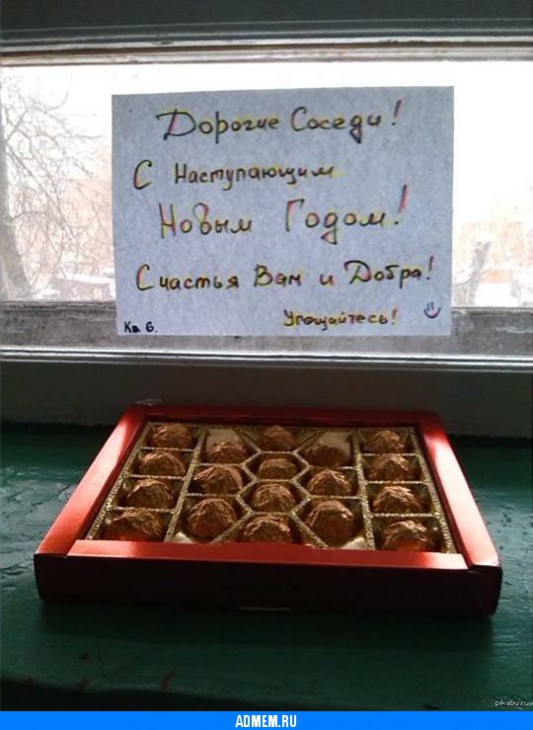 Дорогие Соседи!
С Наступающим
Новым Годом!
Счастья Вам и Добра!
Угощайтесь!
Кв 6.
pikabu.ru
ADMEM.RU